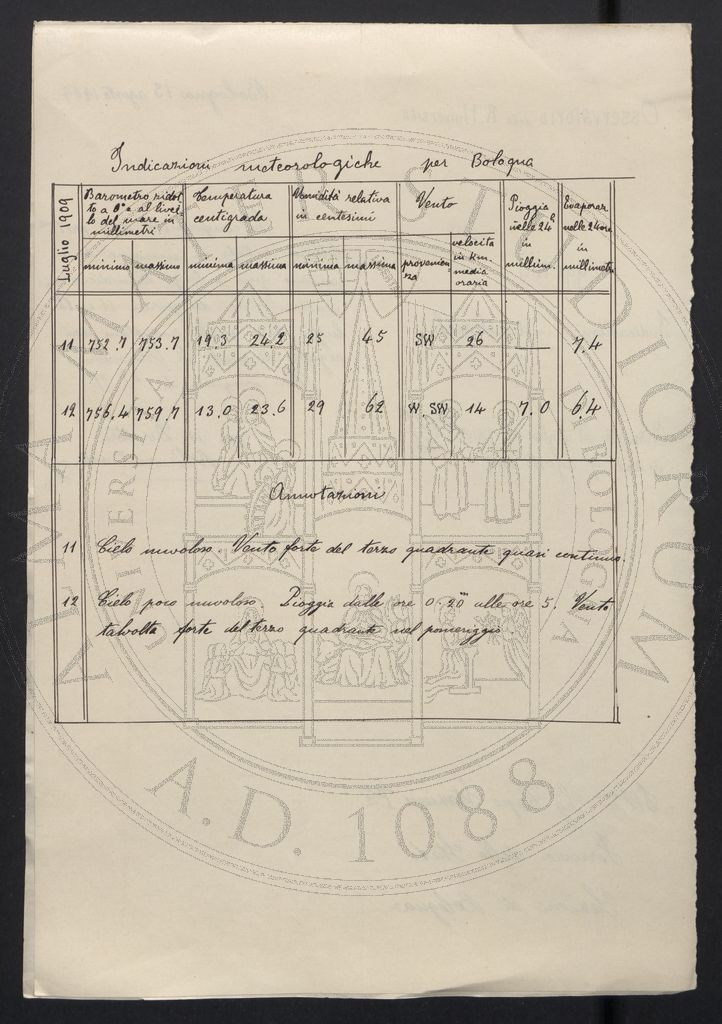 Indicazioni meteorologiche per Bologna
Luglio 1909
Barometro ridot-
to a 0° e al livel-
lo del mare in
millimetri
Temperatura
centigrada
Umidità relativa
in centesimi
Vento
Pioggia
nelle 24 h
in
millim.
Evaporaz.
nelle 24 ore
in
millimetri
minimo massimo minima massima minima massima provenien
za
velocità
in Km.
media
oraria
11 752.7 753.7 19.3 24.2 25 45 SW 26 — 7.4
12 756.4 759.7 13.0 23.6 29 62 W.SW 14 7.0 6.4
Annotazioni
11 Cielo nuvoloso. Vento forte del terzo quadrante quasi continuo.
12 Cielo poco nuvoloso. Pioggia dalle ore 0.20m alle ore 5. Vento
talvolta forte del terzo quadrante nel pomeriggio.
ALMA MATER STUDIORUM
A.D. 1088